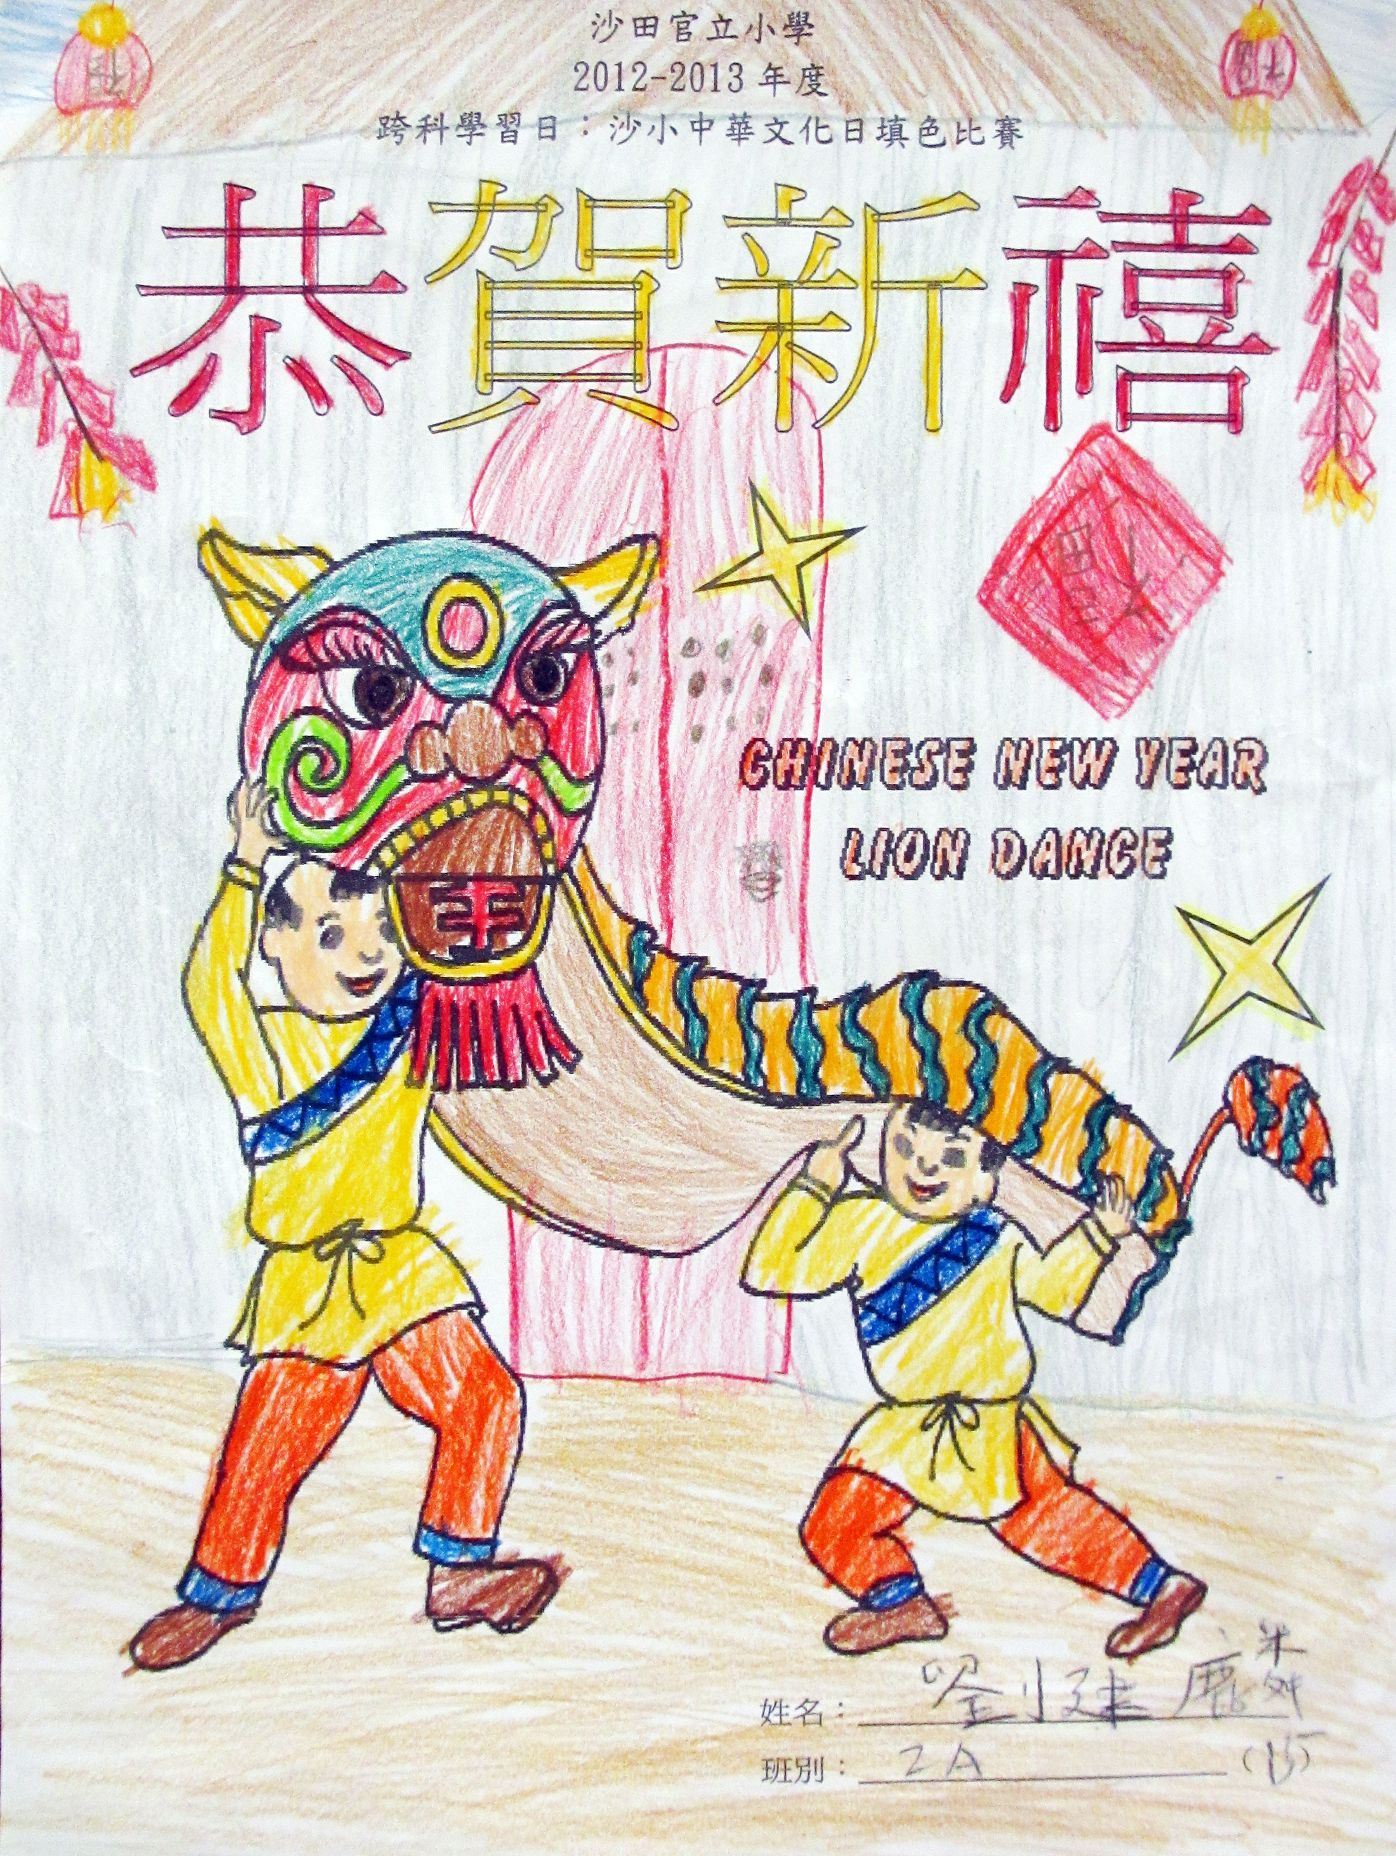 沙田官立小學
2012-2013 年度
跨科學習日：沙小中華文化日填色比賽
恭賀新禧
福
CHINESE NEW YEAR
LION DANCE
姓名：劉建麟
班別：2A (15)